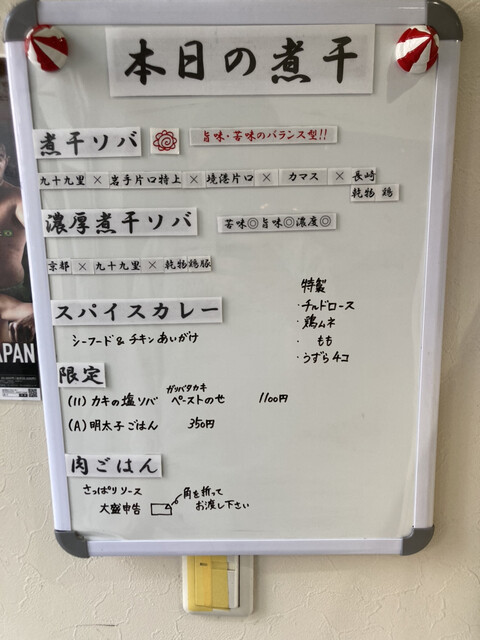 本日の煮干
煮干ソバ
旨味・苦味のバランス型!!
九十九里 × 岩手片口特上 × 境港片口 × カマス × 長崎
乾物 鶏
濃厚煮干ソバ
苦味◎旨味◎濃度◎
京都 × 九十九里 × 乾物鶏豚
スパイスカレー
シーフード&チキンあいがけ
特製
・チルドロース
・鶏ムネ
・もも
・うずら4コ
限定
ガリバタカキ
(11) カキの塩ソバ ペーストのせ 1100円
(A) 明太子ごはん 350円
肉ごはん
さっぱりソース
大盛申告
角を折って
お渡し下さい
PAN